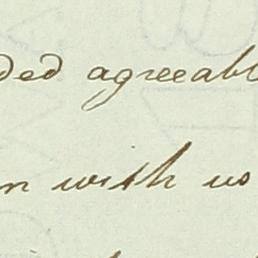 ded agreeabl
n with us